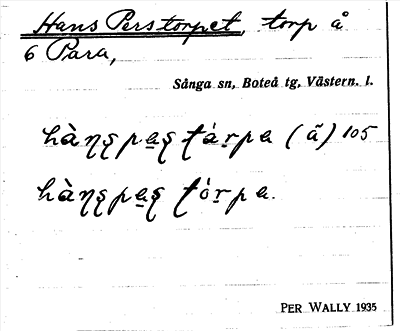 Hans Perstorpet, torp å
6 Para,
Sånga sn, Boteå tg, Västern. l.
hàŋʂpa̱ʂ tár̠pa (ã) 105
hàŋʂpa̱ʂ tór̠pa.
PER WALLY 1935